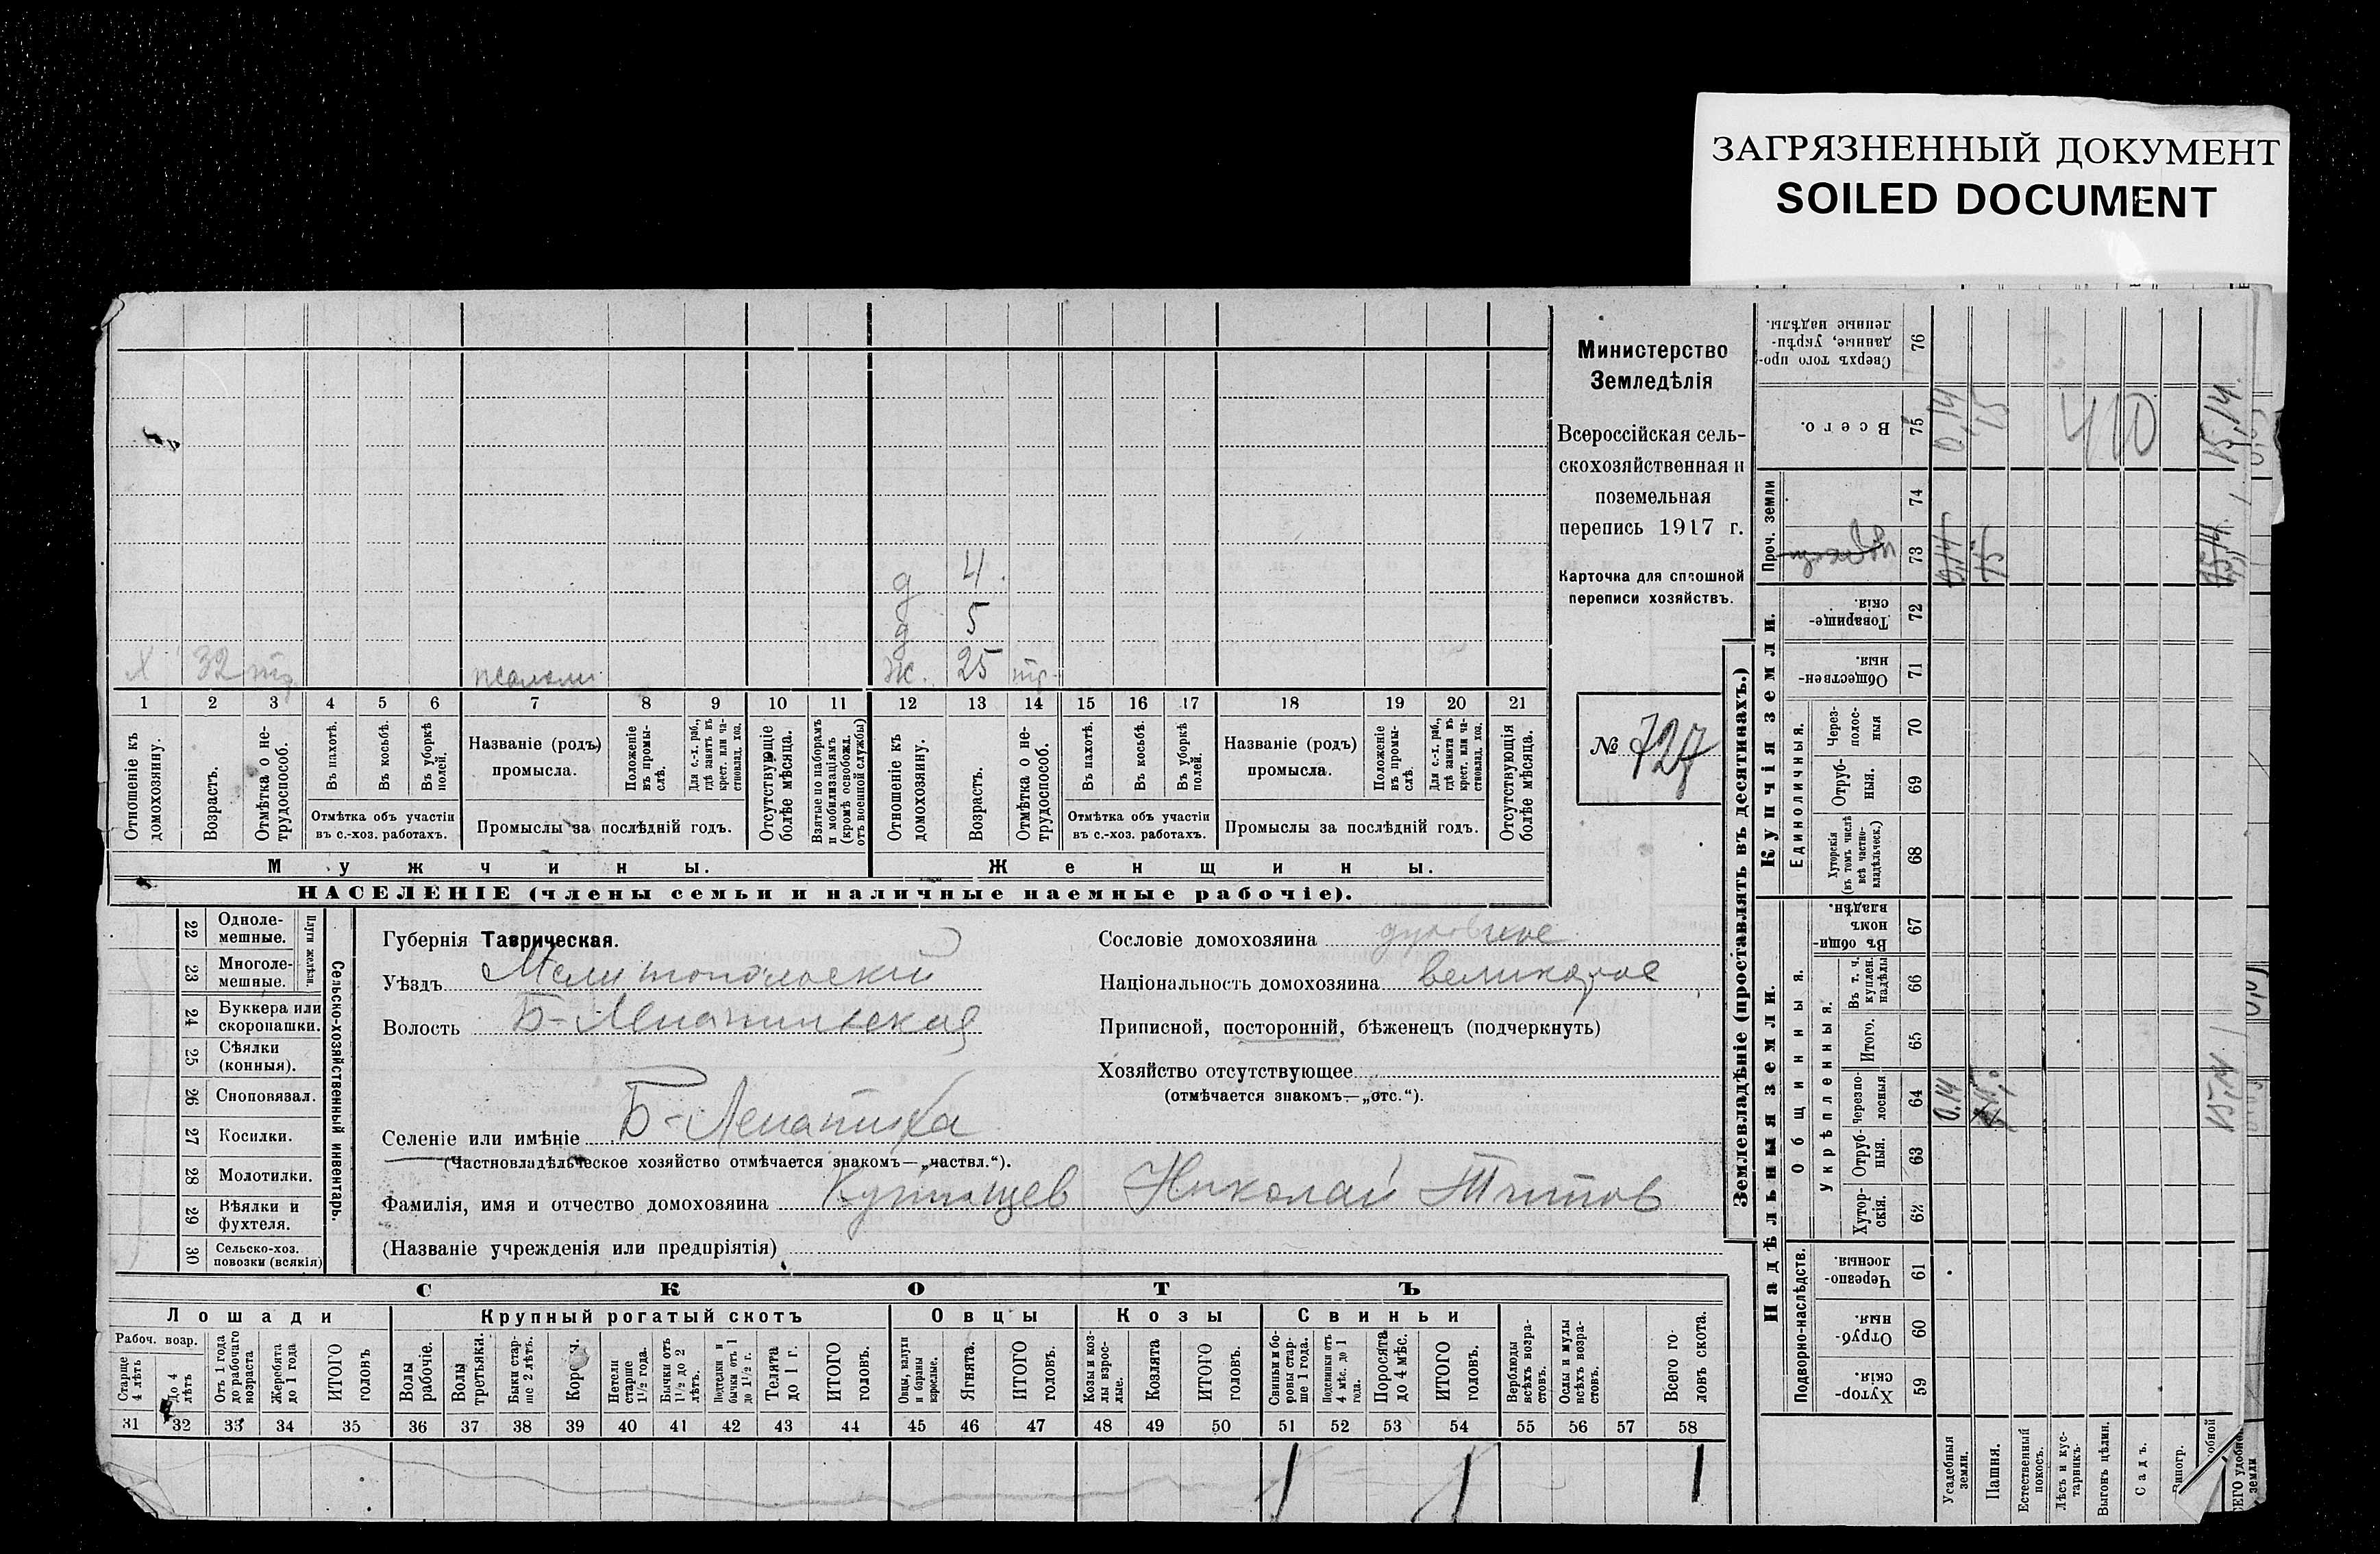 ЗАГРЯЗНЕННЫЙ ДОКУМЕНТ
SOILED DOCUMENT
Министерство
Земледѣлія
Всероссійская сель-
скохозяйственная и
поземельная
перепись 1917 г.
Карточка для сплошной
переписи хозяйствъ.
№ 727
д 4
д 5
Х 32 ж. 25
1 2 3 4 5 6 7 8 9 10 11 12 13 14 15 16 17 18 19 20 21
Отношеніе къ домохозяину.
Возрастъ.
Отмѣтка о не-трудоспособ.
Въ пахотѣ.
Въ косьбѣ.
Въ уборкѣ полей.
Отмѣтка объ участіи
въ с.-хоз. работахъ.
Названіе (родъ)
промысла.
Положеніе въ промы-слѣ.
Для с.-х. раб., гдѣ занятъ въ крест. или ча-стновлад. хоз.
Промыслы за послѣдній годъ.
Отсутствующіе болѣе мѣсяца.
Взятые по наборамъ и мобилизаціямъ (кромѣ освобожд. отъ военной службы)
Отношеніе къ домохозяину.
Возрастъ.
Отмѣтка о не-трудоспособ.
Въ пахотѣ.
Въ косьбѣ.
Въ уборкѣ полей.
Отмѣтка объ участіи
въ с.-хоз. работахъ.
Названіе (родъ)
промысла.
Положеніе въ промы-слѣ.
Для с.-х. раб., гдѣ занята въ крест. или ча-стновлад. хоз.
Промыслы за послѣдній годъ.
Отсутствующія болѣе мѣсяца.
Мужчины. Женщины.
НАСЕЛЕНІЕ (члены семьи и наличные наемные рабочіе).
22 Одноле-мешные.
23 Многоле-мешные.
Плуги желѣзн.
24 Буккера или скоропашки.
25 Сѣялки (конныя).
26 Сноповязал.
27 Косилки.
28 Молотилки.
29 Вѣялки и фухтеля.
30 Сельско-хоз. повозки (всякія)
Сельско-хозяйственный инвентарь.
Губернія Таврическая.
Уѣздъ Мелитопольскій
Волость Б-Лепатихская
Селеніе или имѣніе Б-Лепатиха
(Частновладѣльческое хозяйство отмѣчается знакомъ—„частвл.“).
Фамилія, имя и отчество домохозяина Николай Титов
(Названіе учрежденія или предпріятія)
Сословіе домохозяина духовное
Національность домохозяина великорос
Приписной, посторонній, бѣженецъ (подчеркнуть)
Хозяйство отсутствующее
(отмѣчается знакомъ—„отс.“).
СКОТЪ
Лошади Крупный рогатый скотъ Овцы Козы Свиньи
Рабоч. возр.
Старше 4 лѣтъ
До 4 лѣтъ
Отъ 1 года до рабочаго возраста
Жеребята до 1 года
ИТОГО головъ
Волы рабочіе.
Волы третьяки.
Быки стар-ше 2 лѣтъ.
Нетели старше 1½ года.
Бычки отъ 1½ до 2 лѣтъ.
Подтелки и бычки отъ 1 до 1½ г.
Телята до 1 г.
ИТОГО головъ.
Овцы, валухи и бараны взрослые.
Ягнята.
ИТОГО головъ.
Козы и коз-лы взрос-лые.
Козлята
ИТОГО головъ.
Свиньи и бо-ровы стар-ше 1 года.
Подсвинки отъ 4 мѣс. до 1 года.
Поросята до 4 мѣс.
ИТОГО головъ.
Верблюды всѣхъ возра-стовъ.
Ослы и мулы всѣхъ возра-стовъ.
Всего го-ловъ скота.
31 32 33 34 35 36 37 38 39 40 41 42 43 44 45 46 47 48 49 50 51 52 53 54 55 56 57 58
1 1 1
Землевладѣніе (проставлять въ десятинахъ.)
Надѣльныя земли.
Купчія земли.
Проч. земли
Подворно-наслѣдств.
Общинныя.
Укрѣпленныя.
Единоличныя.
Хутор-скія. 59
Отруб-ныя. 60
Черезпо-лосныя 61
Хутор-скія. 62
Отруб-ныя. 63
Черезпо-лосныя 64
Итого. 65
Въ т. ч. куплен. надѣлы 66
Въ общин-номъ владѣн. 67
Хуторскія (въ томъ числѣ всѣ частно-владѣльческ.) 68
Отруб-ныя. 69
Через-полос-ныя 70
Обществен-ныя. 71
Товарище-скія. 72
73
74
Всего. 75
Сверхъ того про-данные, укрѣп-ленные надѣлы. 76
Усадебныя земли.
Пашня.
Естественный покосъ.
Лѣсъ и кус-тарникъ.
Выгонъ цѣлин.
Садъ.
0,14 0,14 0,14
15 15
15,14 15,14
410